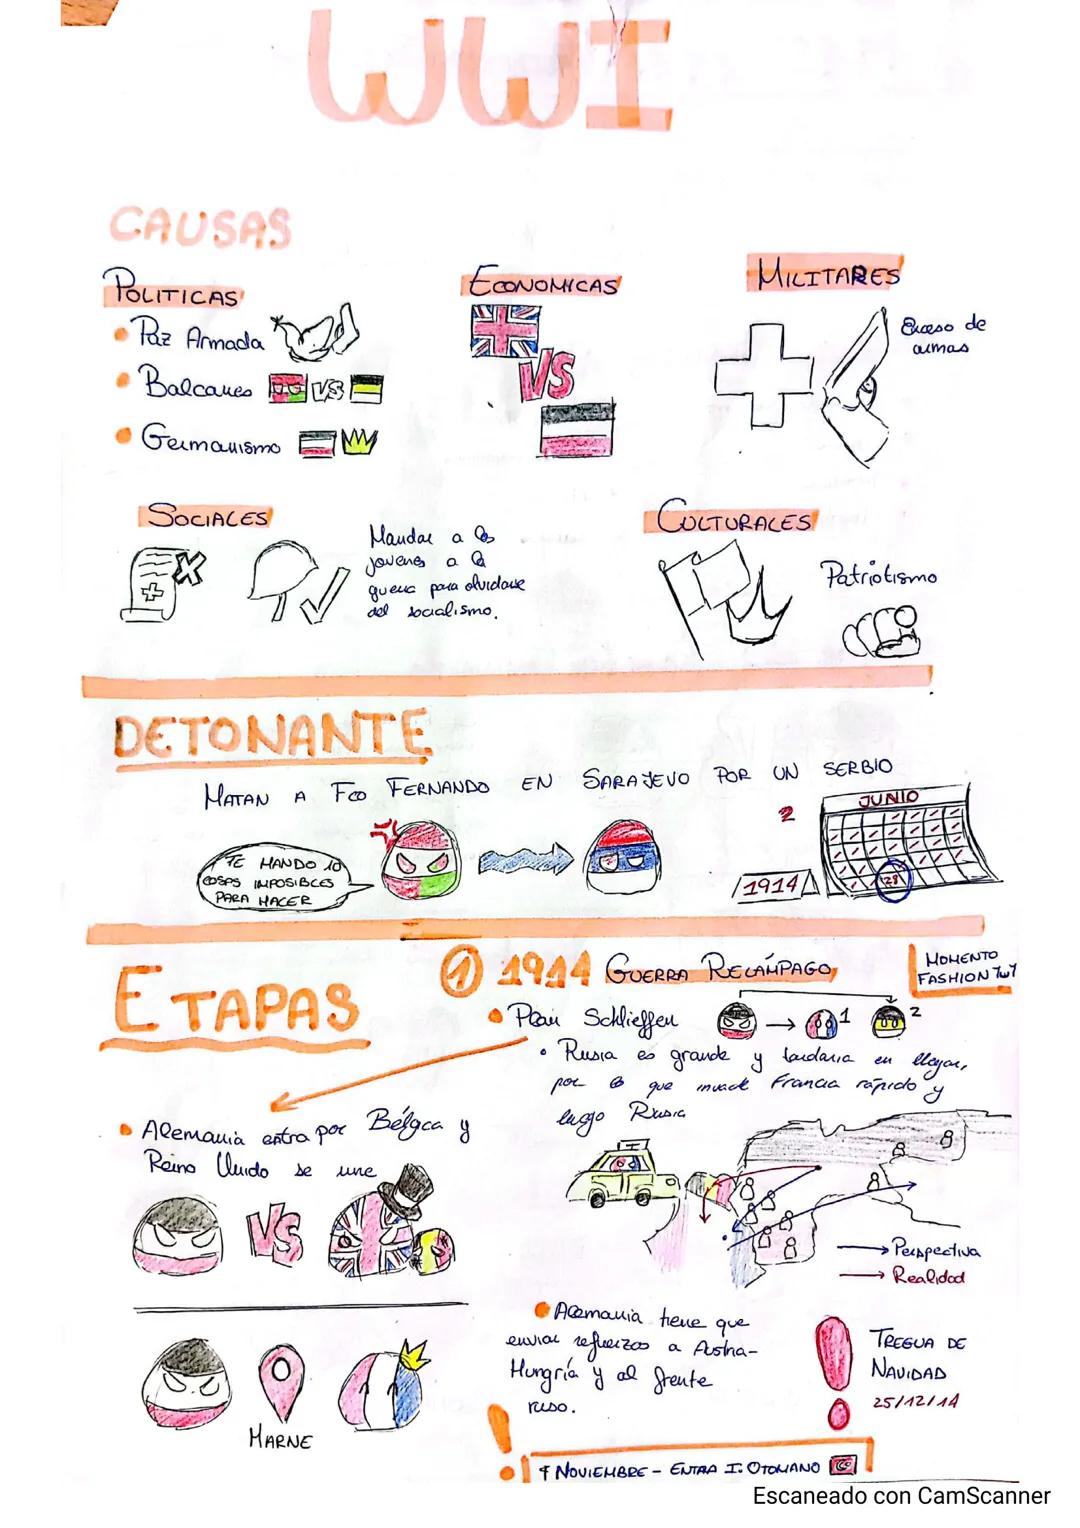 WWI
CAUSAS
POLITICAS
Paz Armada
Balcanes VS
Germanismo
ECONOMICAS
VS
MILITARES
Exceso de
armas
SOCIALES
Mandar a los
jovenes a la
guerra para olvidarse
del socialismo.
CULTURALES
Patriotismo
DETONANTE
MATAN A FCO FERNANDO EN SARAJEVO POR UN SERBIO
TE MANDO 10
COSAS IMPOSIBLES
PARA HACER
2
JUNIO
28
1914
ETAPAS
1 1914 GUERRA RELÁMPAGO
MOMENTO
FASHION
Plan Schlieffen
1
2
Rusia es grande y tardaria en llegar,
por lo que invade Francia rápido y
luego Rusia
Alemania entra por Bélgica y
Reino Unido se une
VS
Perspectiva
Realidad
MARNE
Alemania tiene que
enviar refuerzos a Austria-
Hungría y al frente
ruso.
TREGUA DE
NAVIDAD
25/12/14
NOVIEMBRE - ENTRA I. OTOMANO
Escaneado con CamScanner